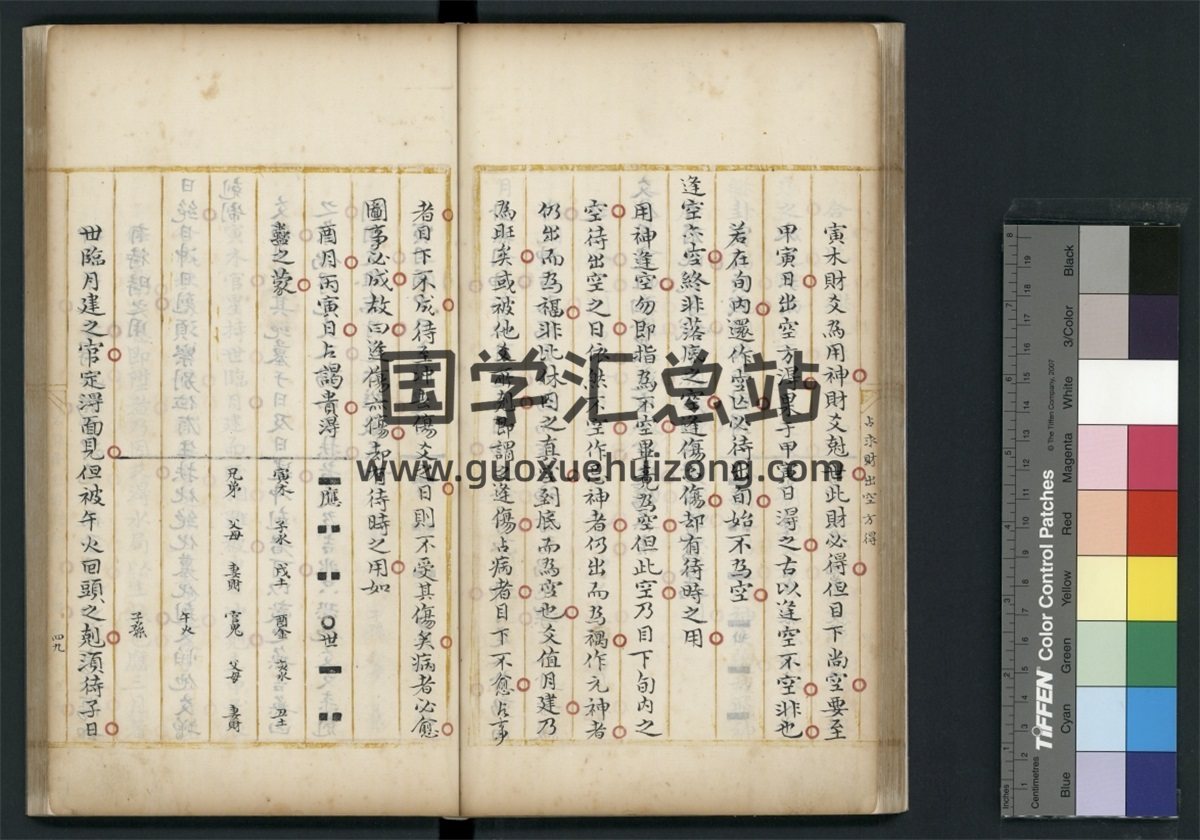 占求財出空方得
寅木財爻為用神財爻尅世此財必得但目下尚空要至
甲寅日出空方得果于甲寅日得之古以逢空不空非也
若在旬內還作空亡必待出旬始不為空
逢空亦空終非落底之空逢傷 傷却有待時之用
用神逢空勿即指為不空畢竟為空但此空乃目下旬內之
空待出空之日依然不空作 神者仍出而為禍作元神者
仍出而為福非此休囚之真 到底而為空也爻值月建乃
為旺矣或被他爻 即謂之逢傷占病者目下不愈占事
者目下不成待至 傷爻之日則不受其傷矣病者必愈
圖事必成故曰逢傷 傷却有待時之用如
酉月丙寅日占謁貴得
蠱之蒙
應 世
寅木 子水 戌土 酉金 亥水 丑土
兄弟 父母 妻財 官鬼 父母 妻財
午火
子孫
世臨月建之官定得面見但被午火回頭之剋須待子日
四九
国学汇总站
www.guoxuehuizong.com
TIFFEN Color Control Patches
© The Tiffen Company, 2007
Inches
Centimetres
Blue
Cyan
Green
Yellow
Red
Magenta
White
3/Color
Black